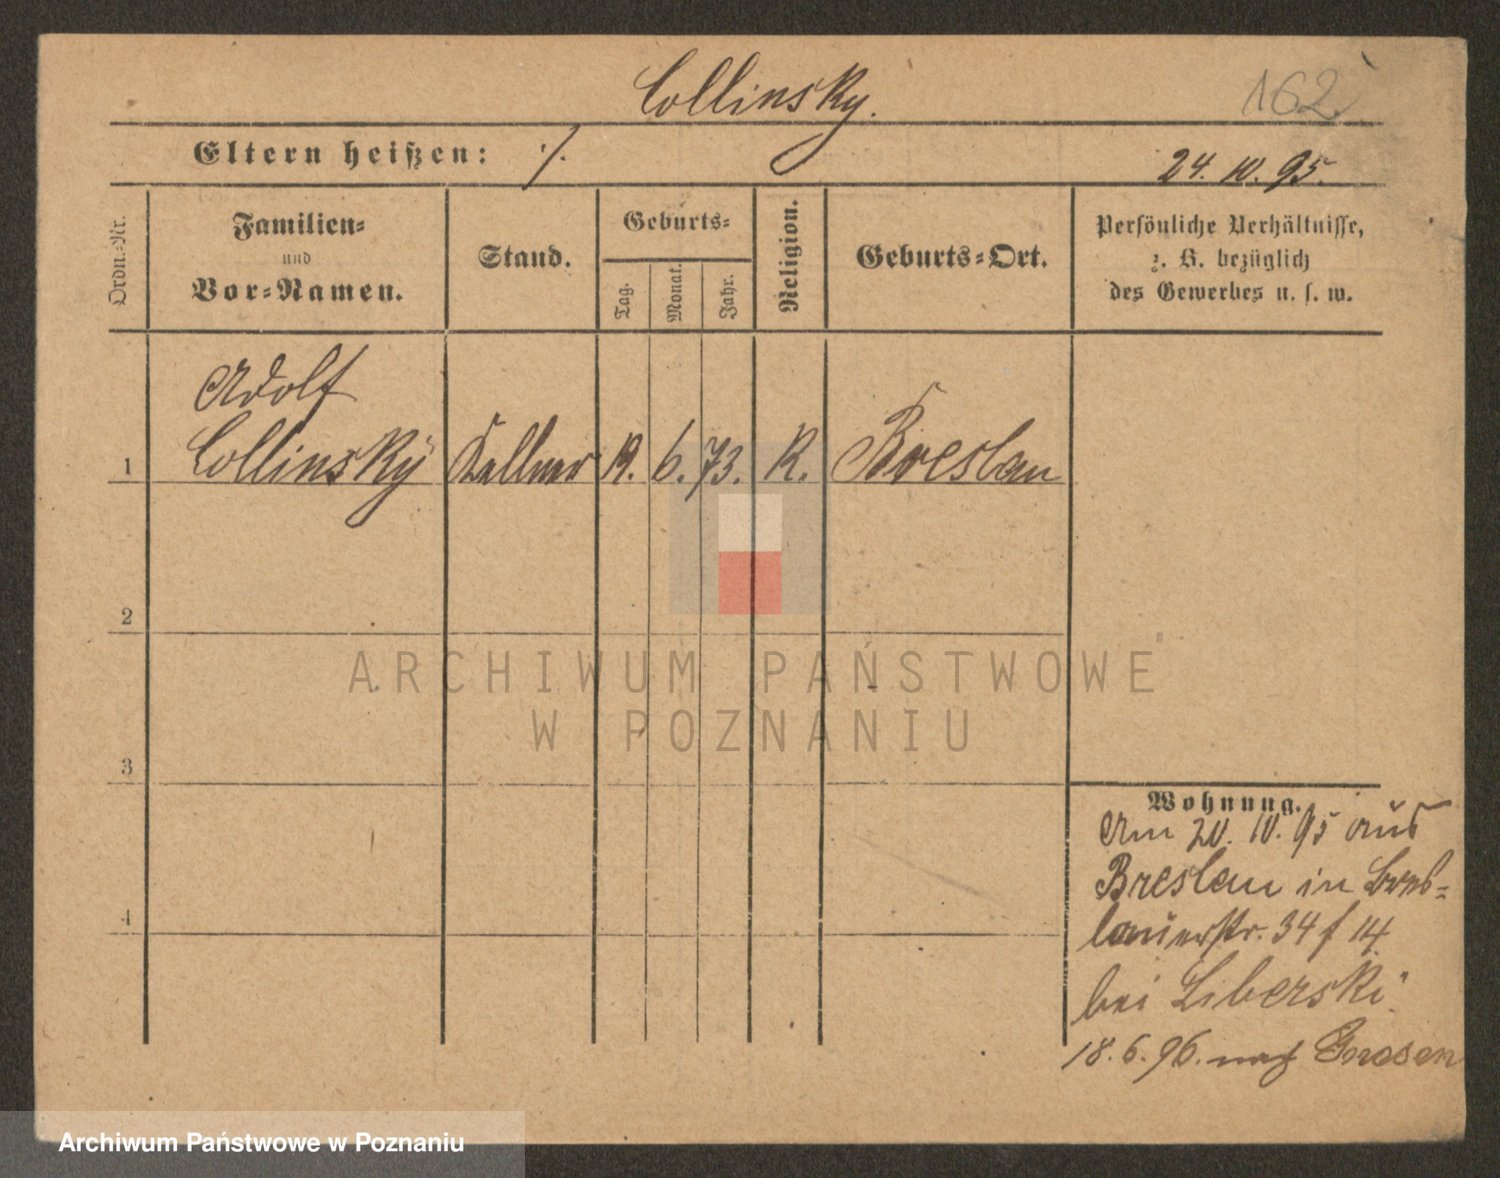 Collinsky.
162
Eltern heißen: ./.
24. 10. 95.
Ordn.-Nr.
Familien-
und
Vor-Namen.
Stand.
Geburts-
Tag.
Monat.
Jahr.
Religion.
Geburts-Ort.
Persönliche Verhältnisse,
z. B. bezüglich
des Gewerbes u. s. w.
Adolf
1 Collinsky Kellner 19. 6. 73. K. Breslau
2
ARCHIWUM PAŃSTWOWE
W POZNANIU
3
Wohnung.
Am 20. 10. 95 aus
Breslau in Bres-
4
lauerstr. 34 f 14
bei Liberski
18. 6. 96. nach Gnesen
Archiwum Państwowe w Poznaniu